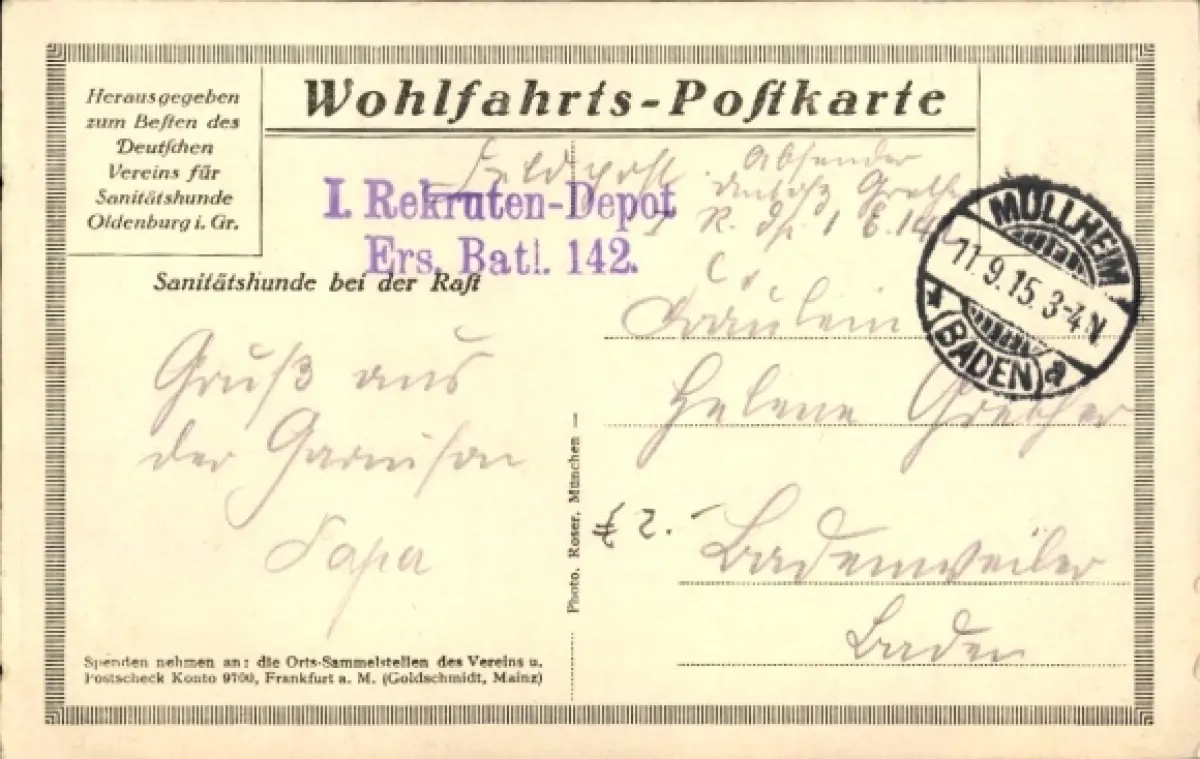 Herausgegeben
zum Beſten des
Deutſchen
Vereins für
Sanitätshunde
Oldenburg i. Gr.
Wohlfahrts-Poſtkarte
Feldpost. Absener
I. Rekruten-Depot
Ers. Batl. 142.
MÜLLHEIM
11.9.15. 3-4 N
(BADEN) a
Sanitätshunde bei der Raſt
Fräulein
Gruß aus
der Garnison
Papa
2.-
Badenweiler
Baden
Photo. Roser. München —
Spenden nehmen an: die Orts-Sammelstellen des Vereins u.
Postscheck Konto 9700, Frankfurt a. M. (Goldschmidt, Mainz)